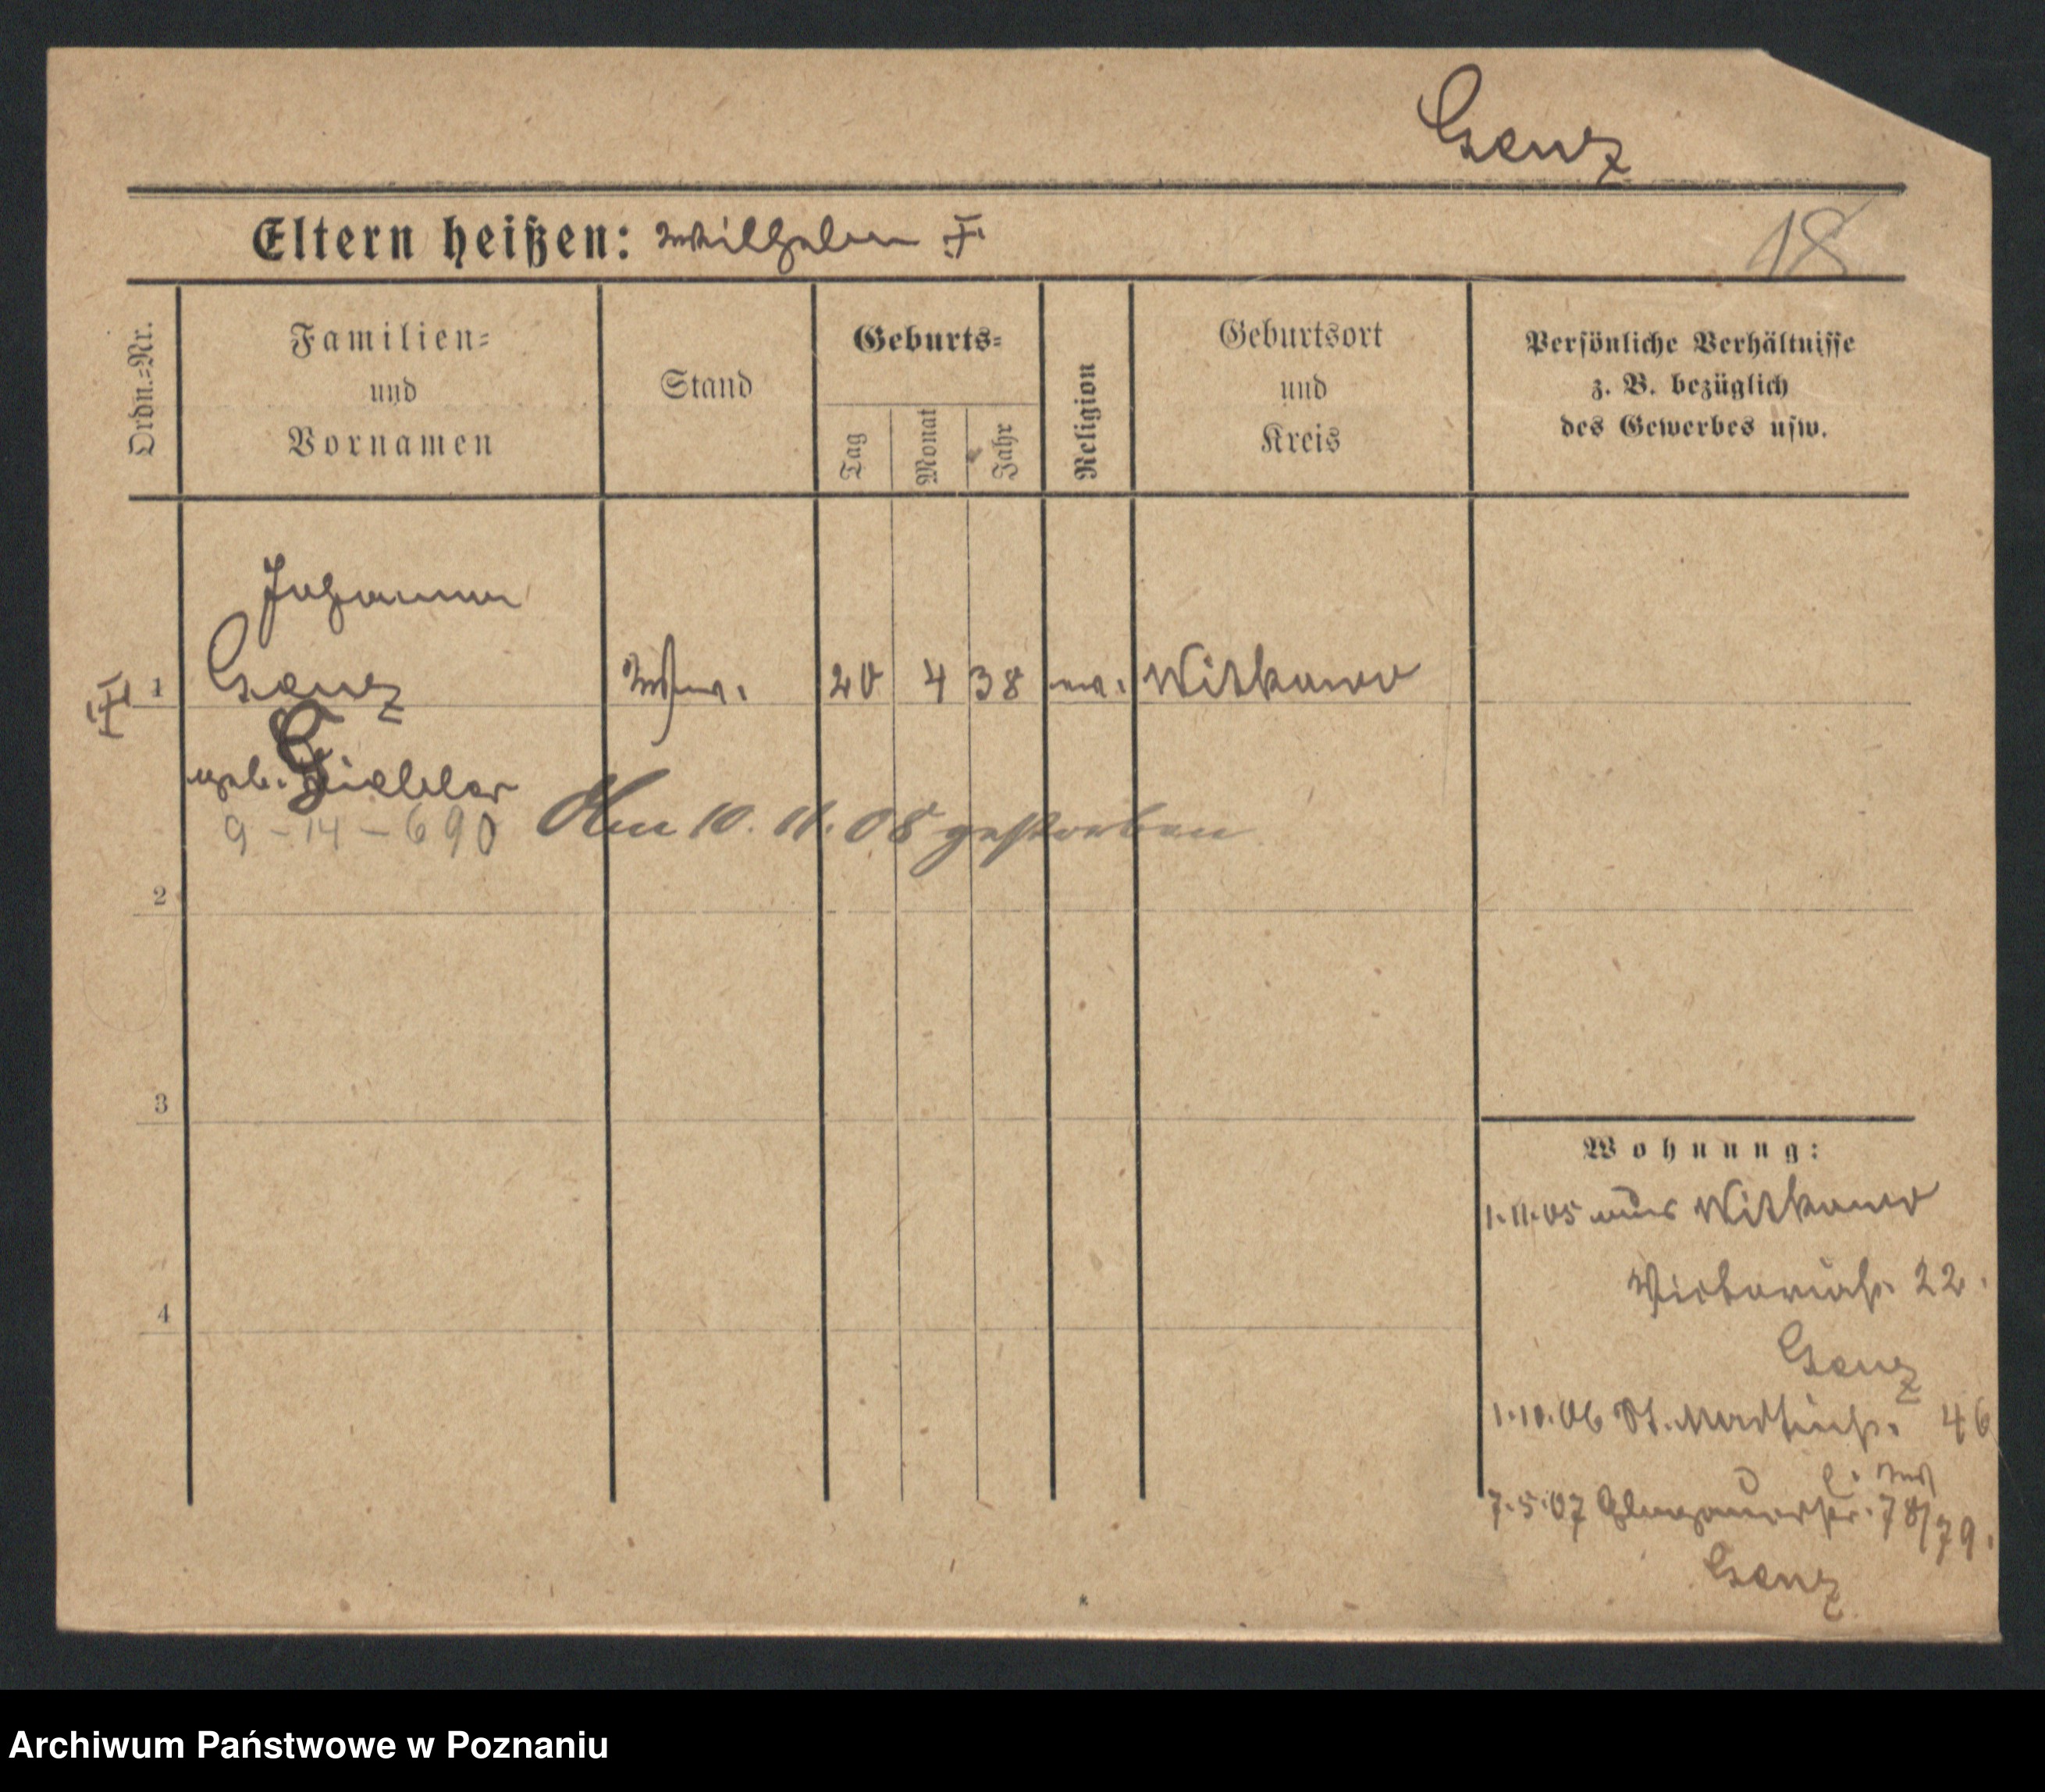 Genz
Eltern heißen: Wilhelm †
18
Ordn.=Nr.
Familien=
und
Vornamen
Stand
Geburts=
Tag
Monat
Jahr
Religion
Geburtsort
und
Kreis
Persönliche Verhältnisse
z. B. bezüglich
des Gewerbes usw.
Johanna
† 1 Genz 20 4 38 ev. Witkowo
geb.
9-14-690 Am 10.11.08 gestorben
2
3
4
Wohnung:
1.11.05 aus Witkowo
Victoriastr. 22.
Genz
1.10.06 St. Martinstr. 46
7.5.07 Glogauerstr. 78/79.
Genz
Archiwum Państwowe w Poznaniu